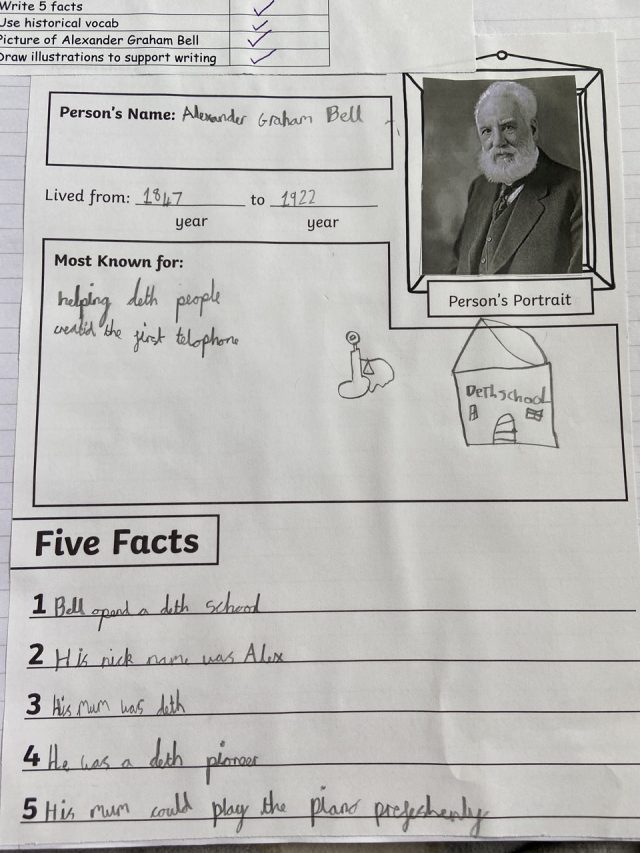 Write 5 facts
Use historical vocab
Picture of Alexander Graham Bell
Draw illustrations to support writing
Person's Name: Alexander Graham Bell
Lived from: 1847 to 1922
year year
Person's Portrait
Most Known for:
helping deth people
creatid the first telophone
Deth school
Five Facts
1 Bell opend a deth school
2 His nick name was Alex
3 His mum was deth
4 He was a deth pioneer
5 His mum could play the piano profeshenly